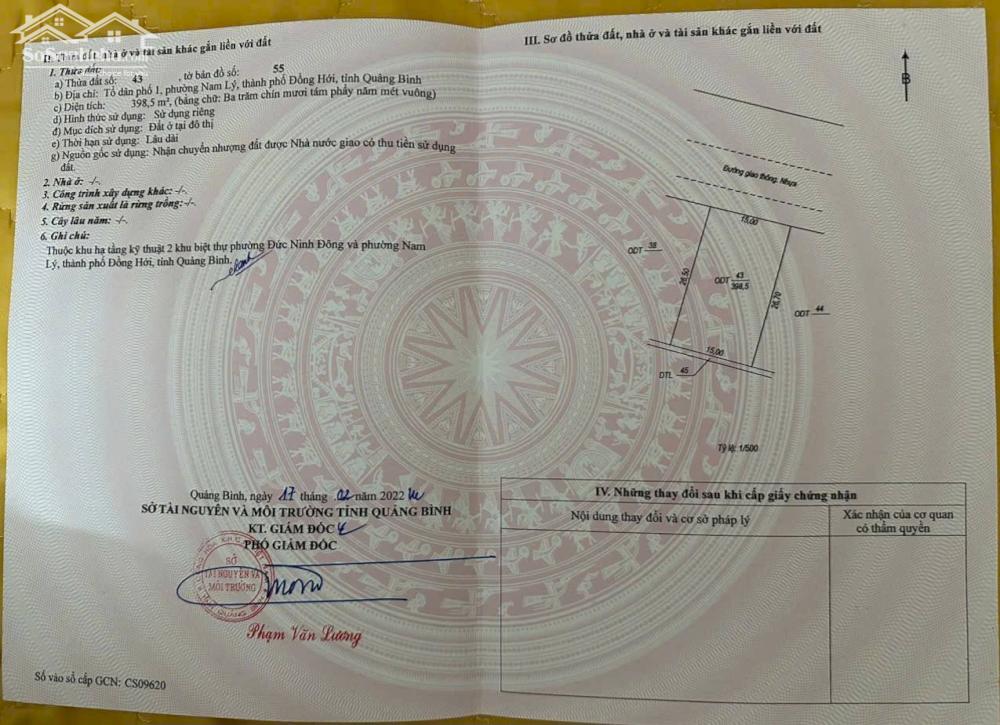 II. Thửa đất, nhà ở và tài sản khác gắn liền với đất
1. Thửa đất:
a) Thửa đất số: 43 , tờ bản đồ số: 55
b) Địa chỉ: Tổ dân phố 1, phường Nam Lý, thành phố Đồng Hới, tỉnh Quảng Bình
c) Diện tích: 398,5 m², (bằng chữ: Ba trăm chín mươi tám phẩy năm mét vuông)
d) Hình thức sử dụng: Sử dụng riêng
đ) Mục đích sử dụng: Đất ở tại đô thị
e) Thời hạn sử dụng: Lâu dài
g) Nguồn gốc sử dụng: Nhận chuyển nhượng đất được Nhà nước giao có thu tiền sử dụng
đất.
2. Nhà ở: -/-.
3. Công trình xây dựng khác: -/-.
4. Rừng sản xuất là rừng trồng:-/-.
5. Cây lâu năm: -/-.
6. Ghi chú:
Thuộc khu hạ tầng kỹ thuật 2 khu biệt thự phường Đức Ninh Đông và phường Nam
Lý, thành phố Đồng Hới, tỉnh Quảng Bình.
Quảng Bình, ngày 17 tháng 02 năm 2022
SỞ TÀI NGUYÊN VÀ MÔI TRƯỜNG TỈNH QUẢNG BÌNH
KT. GIÁM ĐỐC
PHÓ GIÁM ĐỐC
SỞ
TÀI NGUYÊN VÀ
MÔI TRƯỜNG
Phạm Văn Lương
Số vào sổ cấp GCN: CS09620
III. Sơ đồ thửa đất, nhà ở và tài sản khác gắn liền với đất
B
Đường giao thông. Nhựa
15,00
ODT 38
26,50
ODT 43
398,5
26,70
ODT 44
15,00
DTL 45
Tỷ lệ: 1/500
IV. Những thay đổi sau khi cấp giấy chứng nhận
Nội dung thay đổi và cơ sở pháp lý
Xác nhận của cơ quan
có thẩm quyền